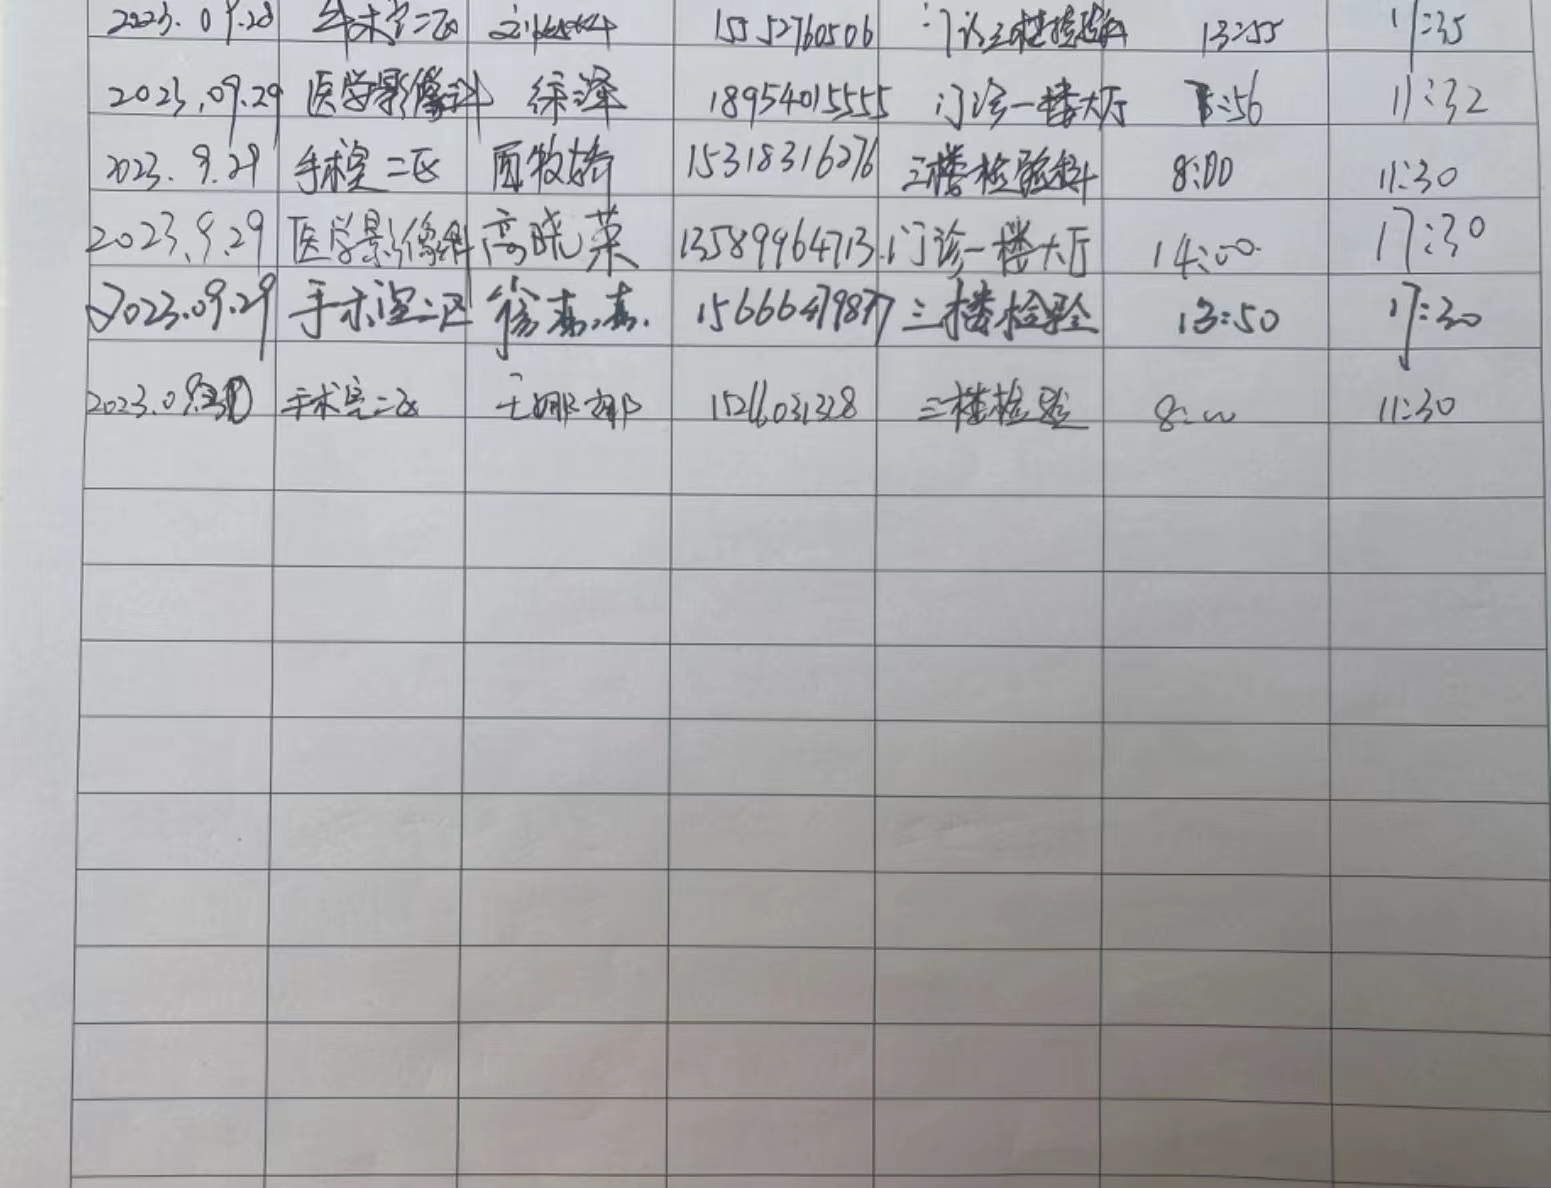 2023.09.28 手术室二区 15552760506 门诊三楼检验科 13:55 17:35
2023.09.29 医学影像科 徐泽 18954015555 门诊一楼大厅 :56 11:32
2023.9.29 手术室二区 牧娇 15318316276 三楼检验科 8:00 11:30
2023.9.29 医学影像科 高晓荣 13589964713 门诊一楼大厅 14:00 17:30
2023.09.29 手术室二区 15666479877 三楼检验 13:50 17:30
2023.09.30 手术室二区 王娜娜 三楼检验 8:00 11:30